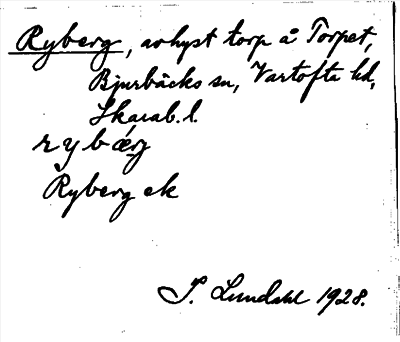 Ryberg, avhyst torp å Torpet,
Bjurbäcks sn, Vartofta hd,
Skarab. l.
rybærg
Ryberg ek
S. Lundahl 1928.